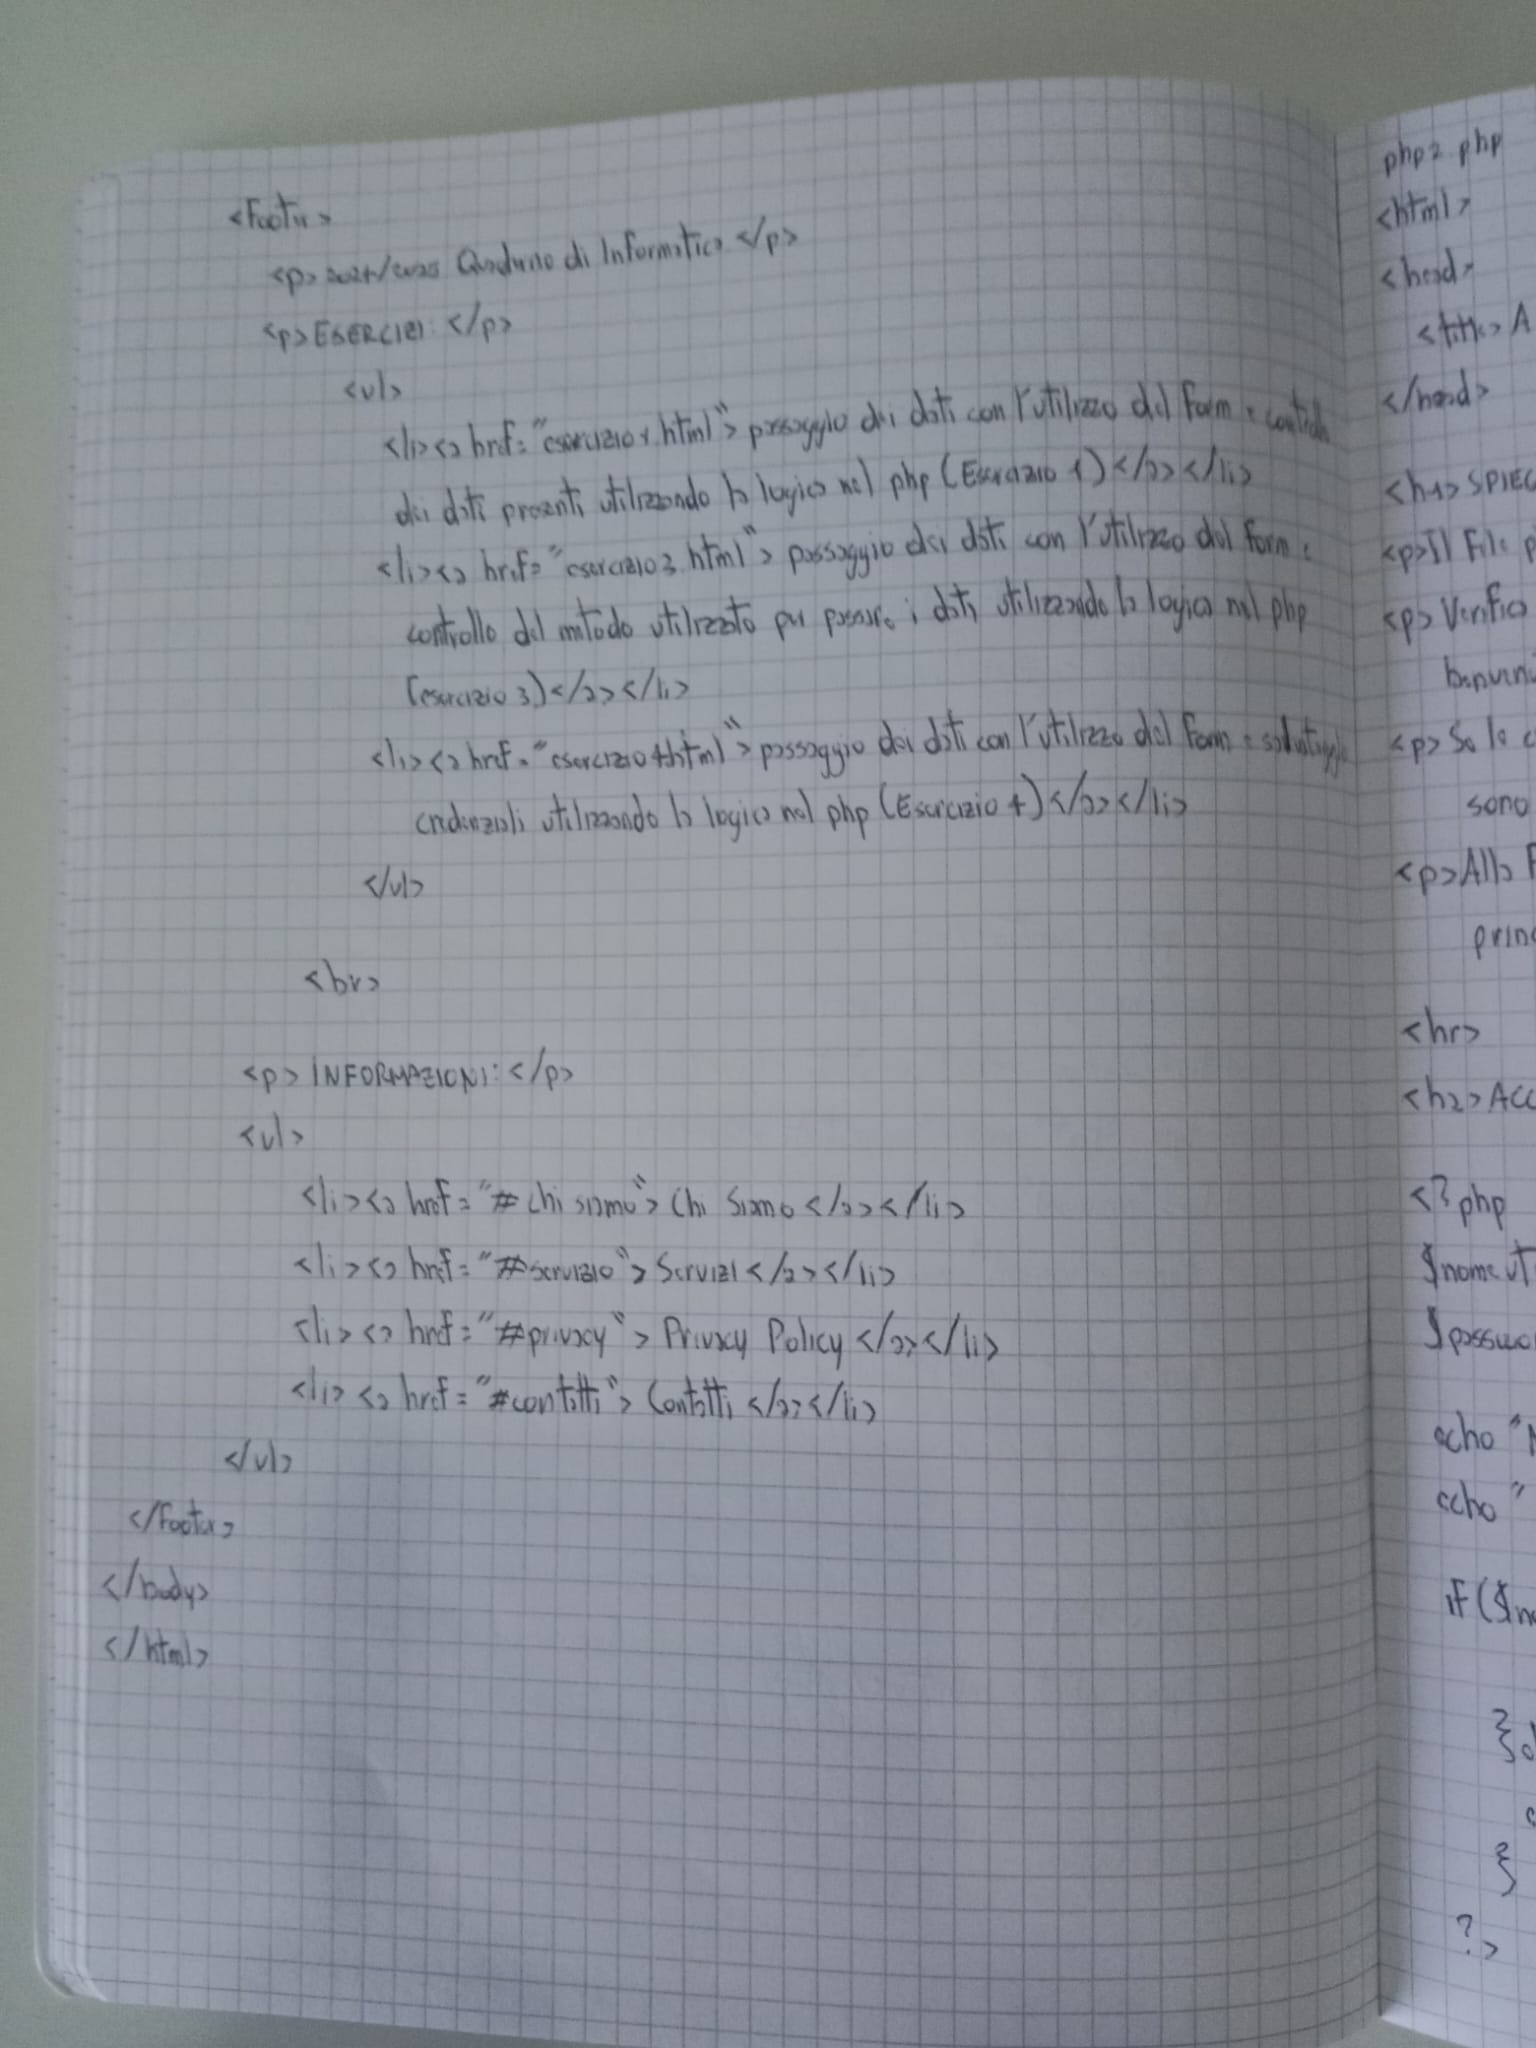 <footer>
<p> 2024/2025 Quaderno di Informatica </p>
<p>ESERCIZI: </p>
<ul>
<li><a href="esercizio1.html"> passaggio dei dati con l'utilizzo del form e controllo
dei dati presenti utilizzando la logica nel php (Esercizio 1)</a></li>
<li><a href="esercizio3.html"> passaggio dei dati con l'utilizzo del form e
controllo del metodo utilizzato per passare i dati utilizzando la logica nel php
(esercizio 3)</a></li>
<li><a href="esercizio4.html"> passaggio dei dati con l'utilizzo del form e
credenziali utilizzando la logica nel php (Esercizio 4)</a></li>
</ul>
<br>
<p> INFORMAZIONI: </p>
<ul>
<li><a href="#chi siamo"> Chi Siamo </a></li>
<li><a href="#servizio"> Servizi </a></li>
<li><a href="#privacy"> Privacy Policy </a></li>
<li><a href="#contatti"> Contatti </a></li>
</ul>
</footer>
</body>
</html>
php2.php
<html>
<head>
<title> A
</head>
<h1> SPIEG
<p>Il File p
<p> Verifica
<p> Se le c
sono
<p>Alla F
princ
<hr>
<h2> ACC
<?php
$nomeut
$passwo
echo "N
echo "
if ($no
}
}
?>